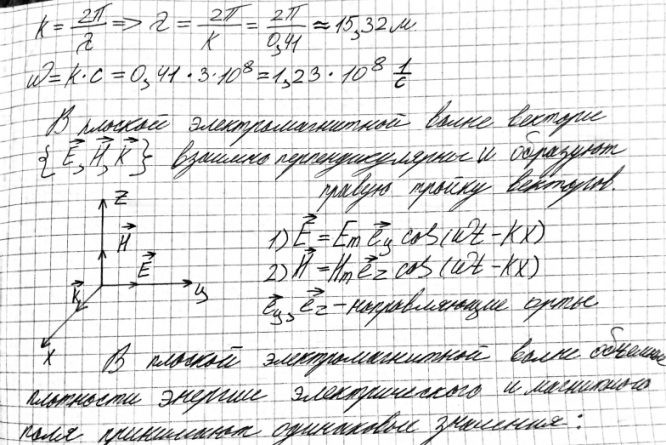 K = 2π/λ => λ = 2π/K = 2π/0,41 ≈ 15,32 м
ω = K·c = 0,41·3·10⁸ = 1,23·10⁸ 1/с
В плоской электромагнитной волне векторы
{E⃗, H⃗, K⃗} взаимно перпендикулярны и образуют
правую тройку векторов.
Z
H⃗
E⃗
K⃗
y
X
1) E⃗ = Eₘ e⃗y cos(ωt - Kx)
2) H⃗ = Hₘ e⃗z cos(ωt - Kx)
e⃗y, e⃗z - направляющие орты
В плоской электромагнитной волне объемные
плотности энергии электрического и магнитного
поля принимают одинаковые значения: